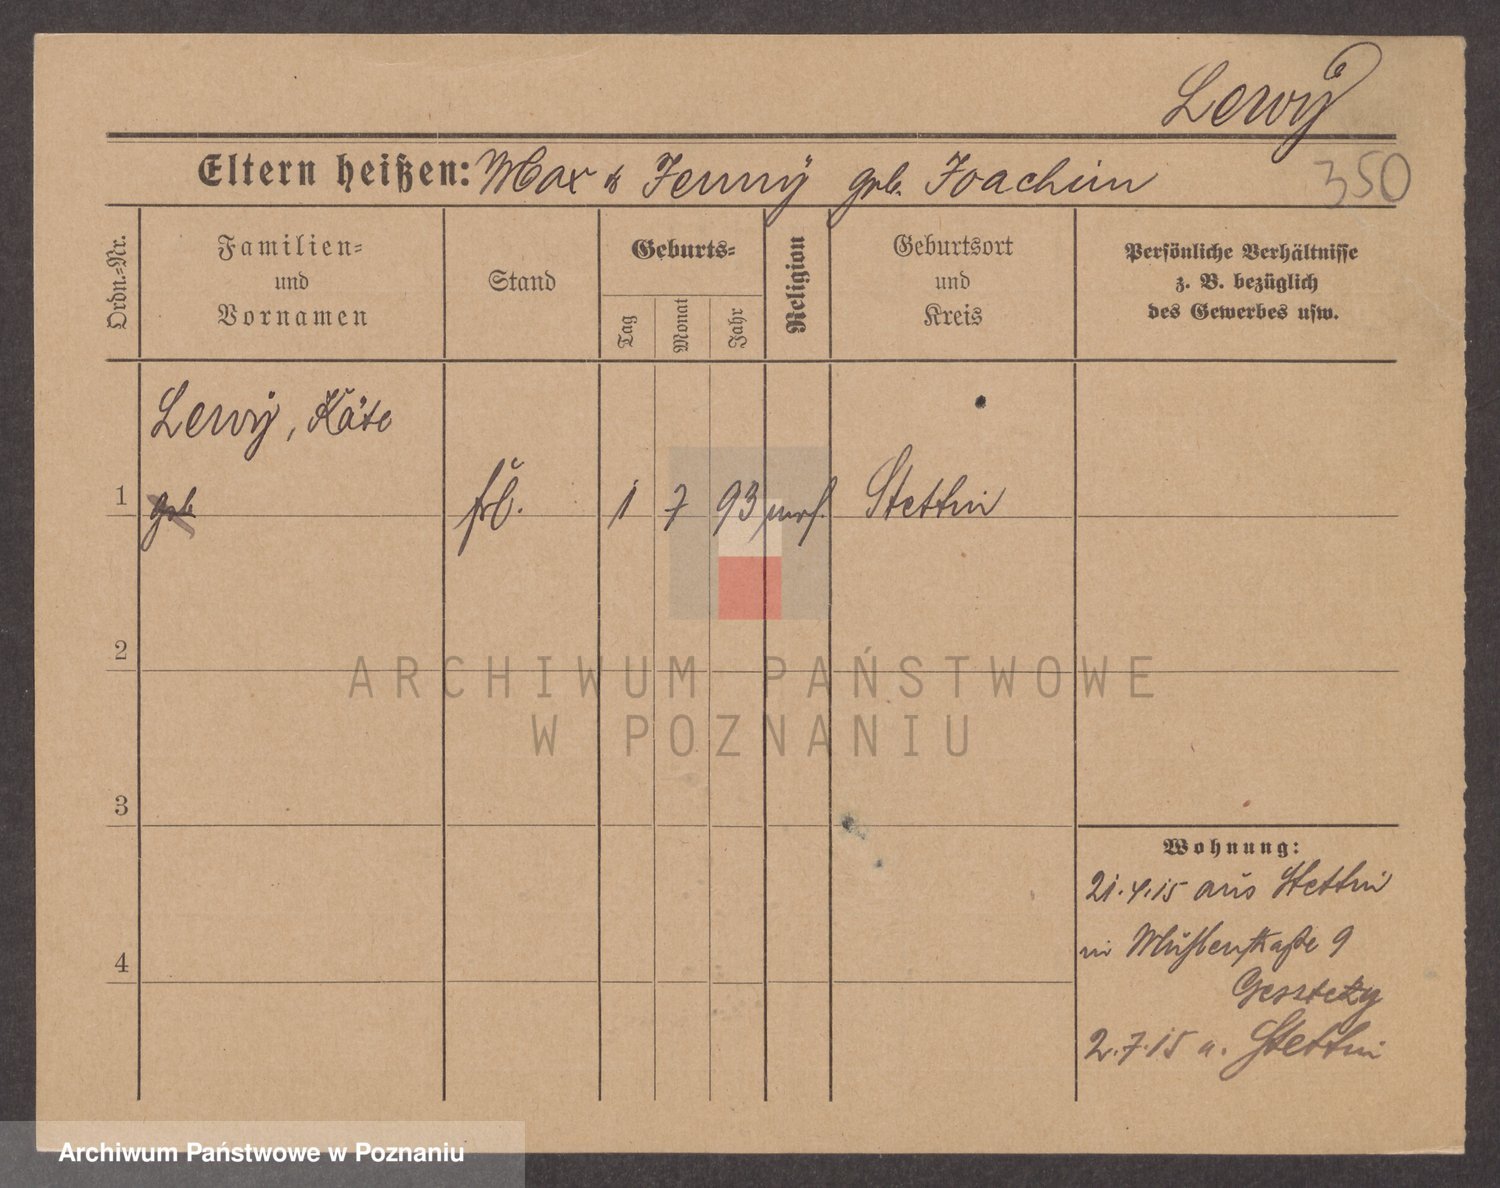 Lewÿ
Eltern heißen: Max & Jennÿ geb. Joachim
350
Ordn.-Nr.
Familien-
und
Vornamen
Stand
Geburts-
Tag
Monat
Jahr
Religion
Geburtsort
und
Kreis
Persönliche Verhältnisse
z. B. bezüglich
des Gewerbes usw.
Lewÿ, Käte
1 geb frl. 1 7 93 mos. Stettin
2
3
4
Wohnung:
21.4.15 aus Stettin
in Mühlenstraße 9
2.7.15 n. Stettin
ARCHIWUM PAŃSTWOWE
W POZNANIU
Archiwum Państwowe w Poznaniu